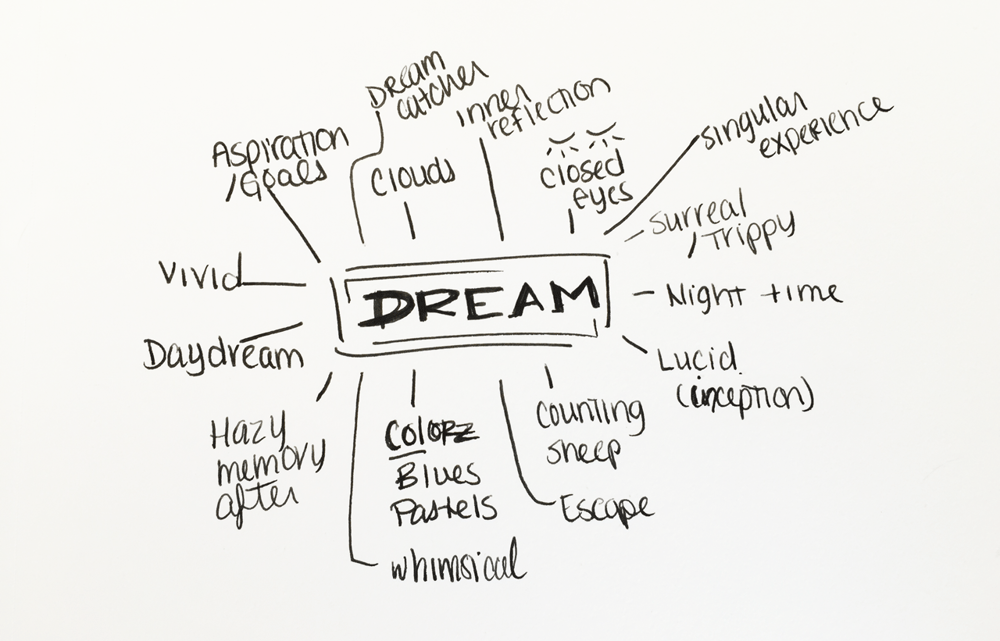 Dream
catcher
Inner
reflection
Singular
experience
Aspiration
/Goals
Clouds
Closed
eyes
Surreal
/Trippy
Vivid
DREAM
Night time
Daydream
Lucid
(inception)
Hazy
memory
after
Colors
Blues
Pastels
Counting
sheep
Escape
whimsical